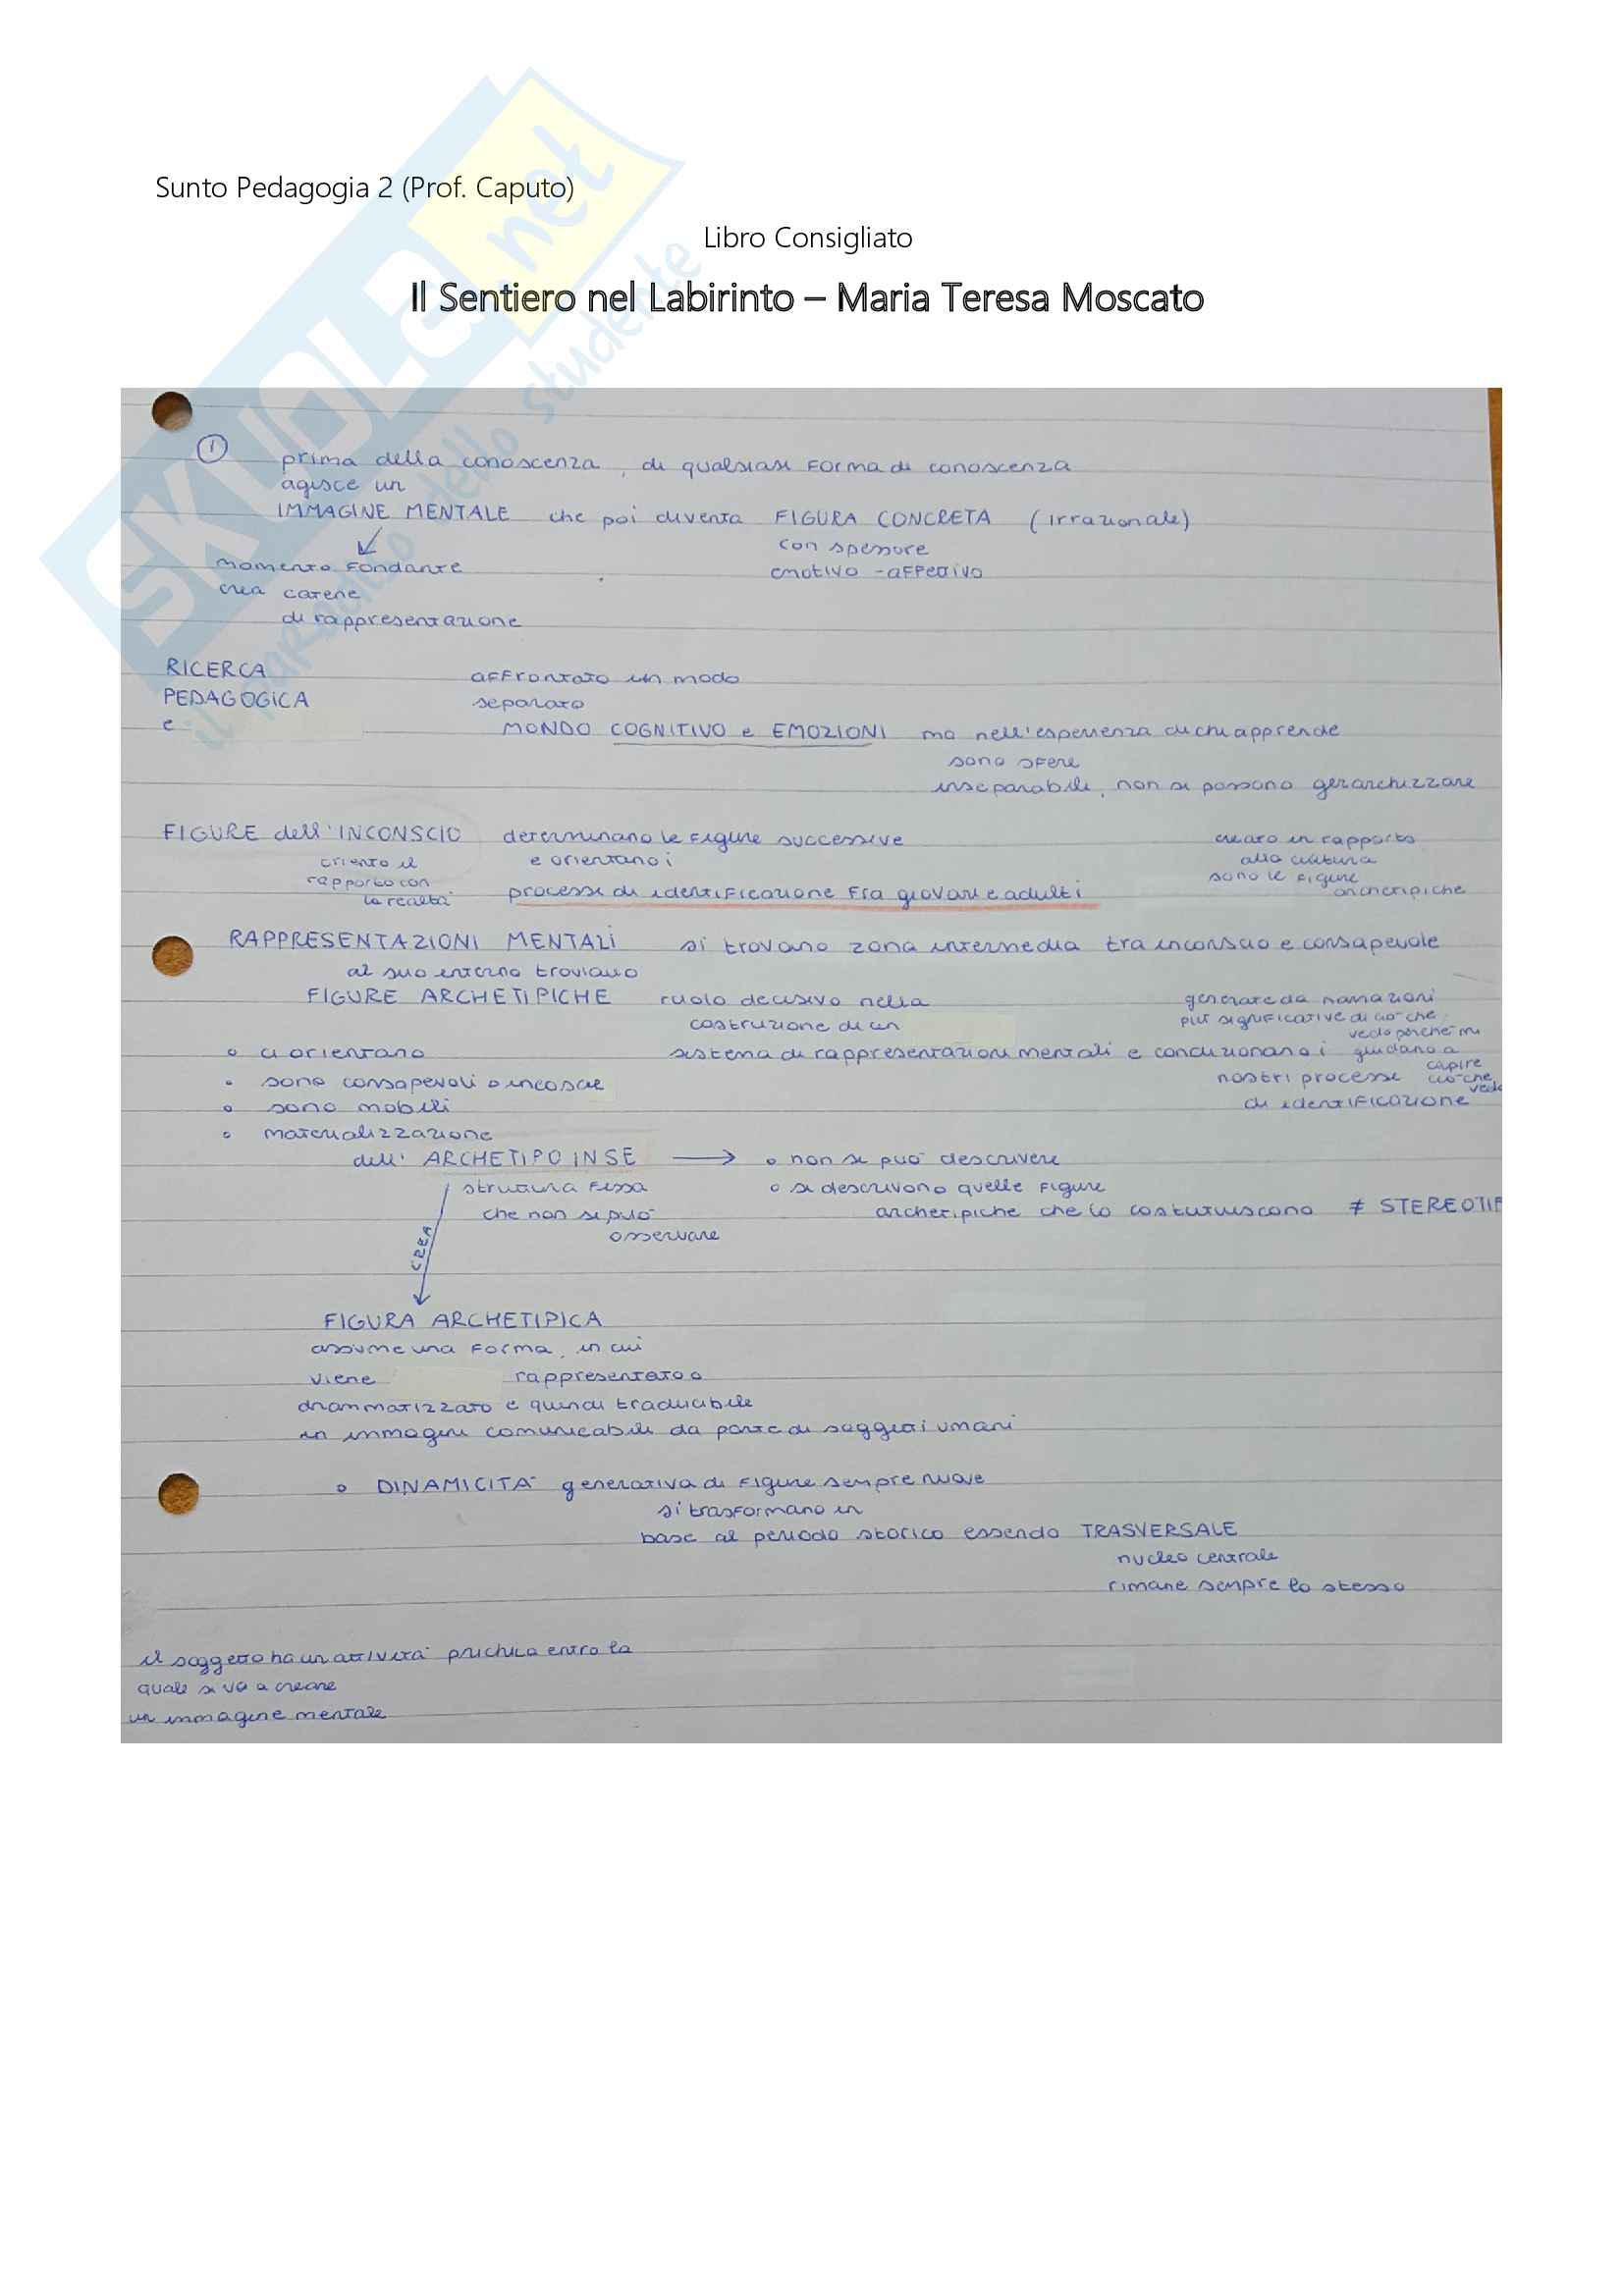 Sunto Pedagogia 2 (Prof. Caputo)
Libro Consigliato
Il Sentiero nel Labirinto – Maria Teresa Moscato
SKUOLA.net
il paradiso dello studente
1
prima della conoscenza, di qualsiasi forma di conoscenza
agisce un
IMMAGINE MENTALE che poi diventa FIGURA CONCRETA (irrazionale)
con spessore
emotivo - affettivo
momento fondante
crea catene
di rappresentazione
RICERCA
PEDAGOGICA
e
affrontato in modo
separato
MONDO COGNITIVO e EMOZIONI ma nell'esperienza di chi apprende
sono sfere
inseparabili, non si possono gerarchizzare
FIGURE dell'INCONSCIO determinano le figure successive
e orientano i
processi di identificazione fra giovani e adulti
orienta il
rapporto con
la realtà
creato in rapporto
alla cultura
sono le figure
archetipiche
RAPPRESENTAZIONI MENTALI si trovano zona intermedia tra inconscio e consapevole
al suo interno troviamo
FIGURE ARCHETIPICHE ruolo decisivo nella
costruzione di un
sistema di rappresentazioni mentali e condizionano i
nostri processi
di identificazione
generate da narrazioni
più significative di ciò che
vedo perchè mi
guidano a
capire
ciò che
vedo
o ci orientano
o sono consapevoli o inconscie
o sono mobili
o materializzazione
dell' ARCHETIPO IN SE → o non si può descrivere
struttura fissa
che non si può
osservare
o si descrivono quelle figure
archetipiche che lo costituiscono ≠ STEREOTIP
CREA
FIGURA ARCHETIPICA
assume una forma, in cui
viene rappresentato o
drammatizzato e quindi traducibile
in immagini comunicabili da parte di soggetti umani
o DINAMICITÀ generativa di figure sempre nuove
si trasformano in
base al periodo storico essendo TRASVERSALE
nucleo centrale
rimane sempre lo stesso
il soggetto ha un attività psichica entro la
quale si va a creare
un immagine mentale